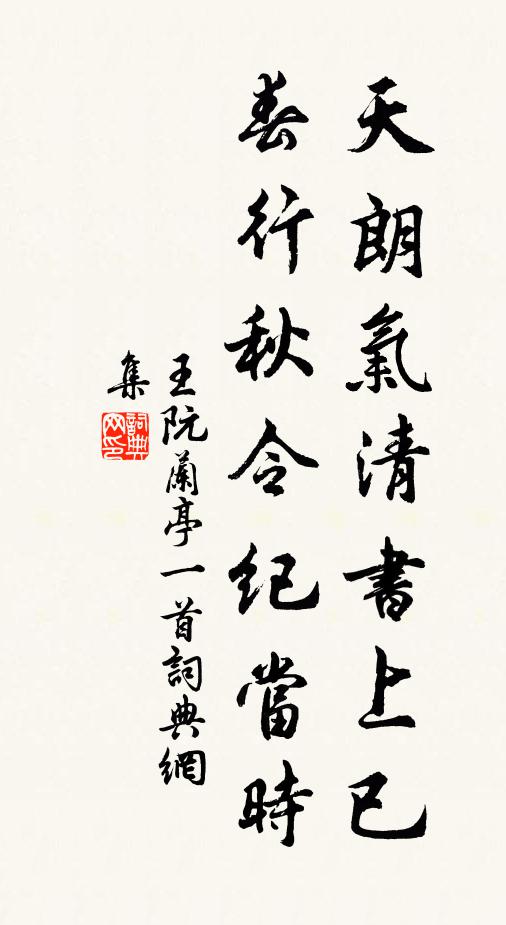 天朗氣清書上巳
春行秋令纪當時
王阮蘭亭一首詞典網
集
詞典網印